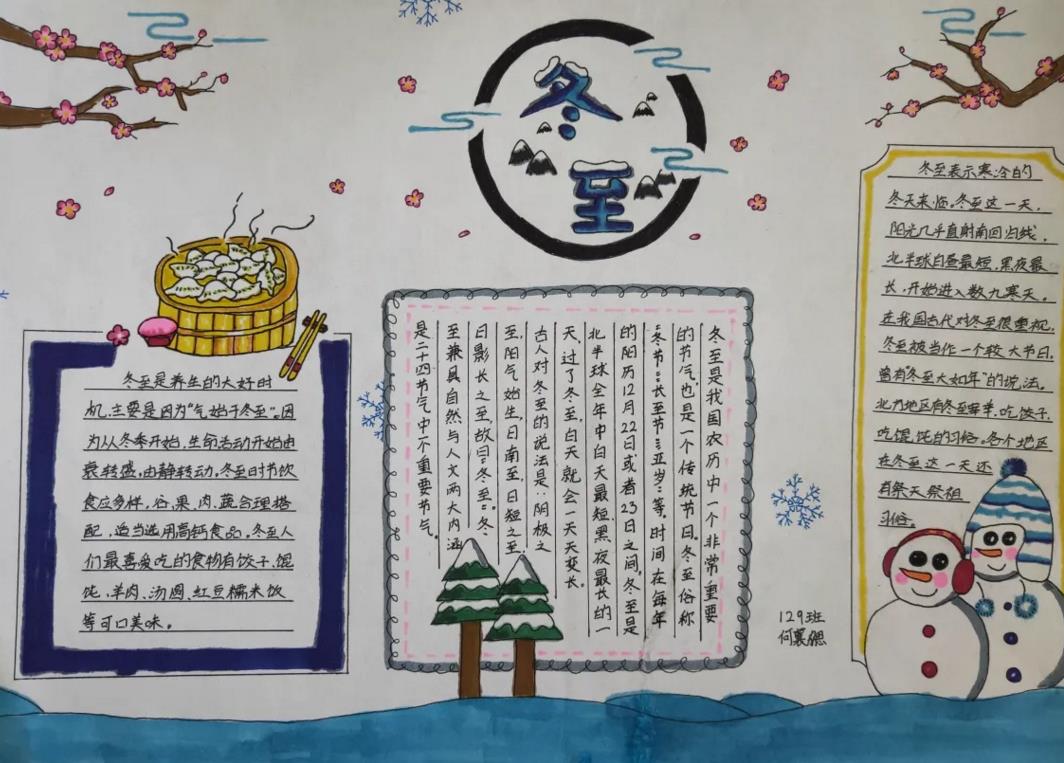 冬至
冬至是养生的大好时
机,主要是因为“气始于冬至”。因
为从冬季开始,生命活动开始由
衰转盛,由静转动。冬至时节饮
食应多样,谷、果、肉、蔬合理搭
配,适当选用高钙食品。冬至人
们最喜爱吃的食物有饺子、馄
饨、羊肉、汤圆、红豆糯米饭
等可口美味。
冬至是我国农历中一个非常重要
的节气,也是一个传统节日。冬至俗称
“冬节”“长至节”“亚岁”等。时间在每年
的阳历12月22日或者23日之间,冬至是
北半球全年中白天最短、黑夜最长的一
天,过了冬至,白天就会一天天变长。
古人对冬至的说法是:阴极之
至,阳气始生,日南至,日短之至,
日影长之至,故曰“冬至”。冬
至兼具自然与人文两大内涵
是二十四节气中不重要节气。
冬至表示寒冷的
冬天来临。冬至这一天,
阳光几乎直射南回归线,
北半球白昼最短,黑夜最
长,开始进入数九寒天。
在我国古代对冬至很重视,
冬至被当作一个较大节日,
曾有冬至大如年”的说法。
北方地区有冬至宰羊,吃饺子、
吃馄饨的习俗。各个地区
在冬至这一天还
有祭天祭祖
习俗。
129班
何襄